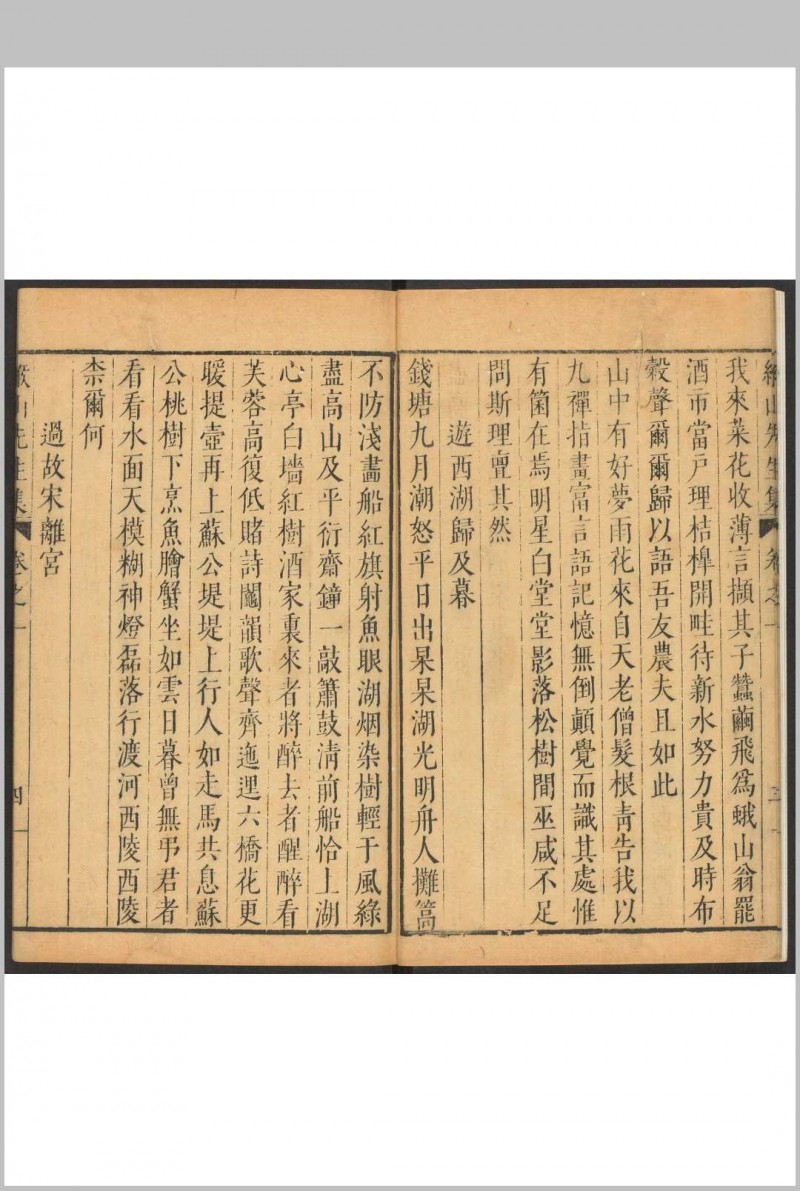 山先生集 卷之一 三
我來菜花收薄言擷其子蠶繭飛爲蛾山翁罷
酒市當戸理桔槹開畦待新水努力貴及時布
穀聲爾爾歸以語吾友農夫且如此
山中有好夢雨花來自天老僧髮根靑告我以
九禪指畫富言語記憶無倒顛覺而識其處惟
有箇在焉明星白堂堂影落松樹間巫咸不足
問斯理亶其然
遊西湖歸及暮
錢塘九月潮怒平日出杲杲湖光明舟人攤篙
不防淺畵船紅旗射魚眼湖烟染樹輕于風綠
盡高山及平衍齋鐘一敲簫鼓淸前船恰上湖
心亭白墻紅樹酒家裏來者將醉去者醒醉看
芙蓉高復低賭詩鬮韻歌聲齊迤逕六橋花更
暖提壺再上蘇公堤堤上行人如走馬共息蘇
公桃樹下烹魚膾蟹坐如雲日暮曾無弔君者
看看水面天模糊神燈磊落行渡河西陵西陵
柰爾何
過故宋離宮
山先生集 卷之一 四